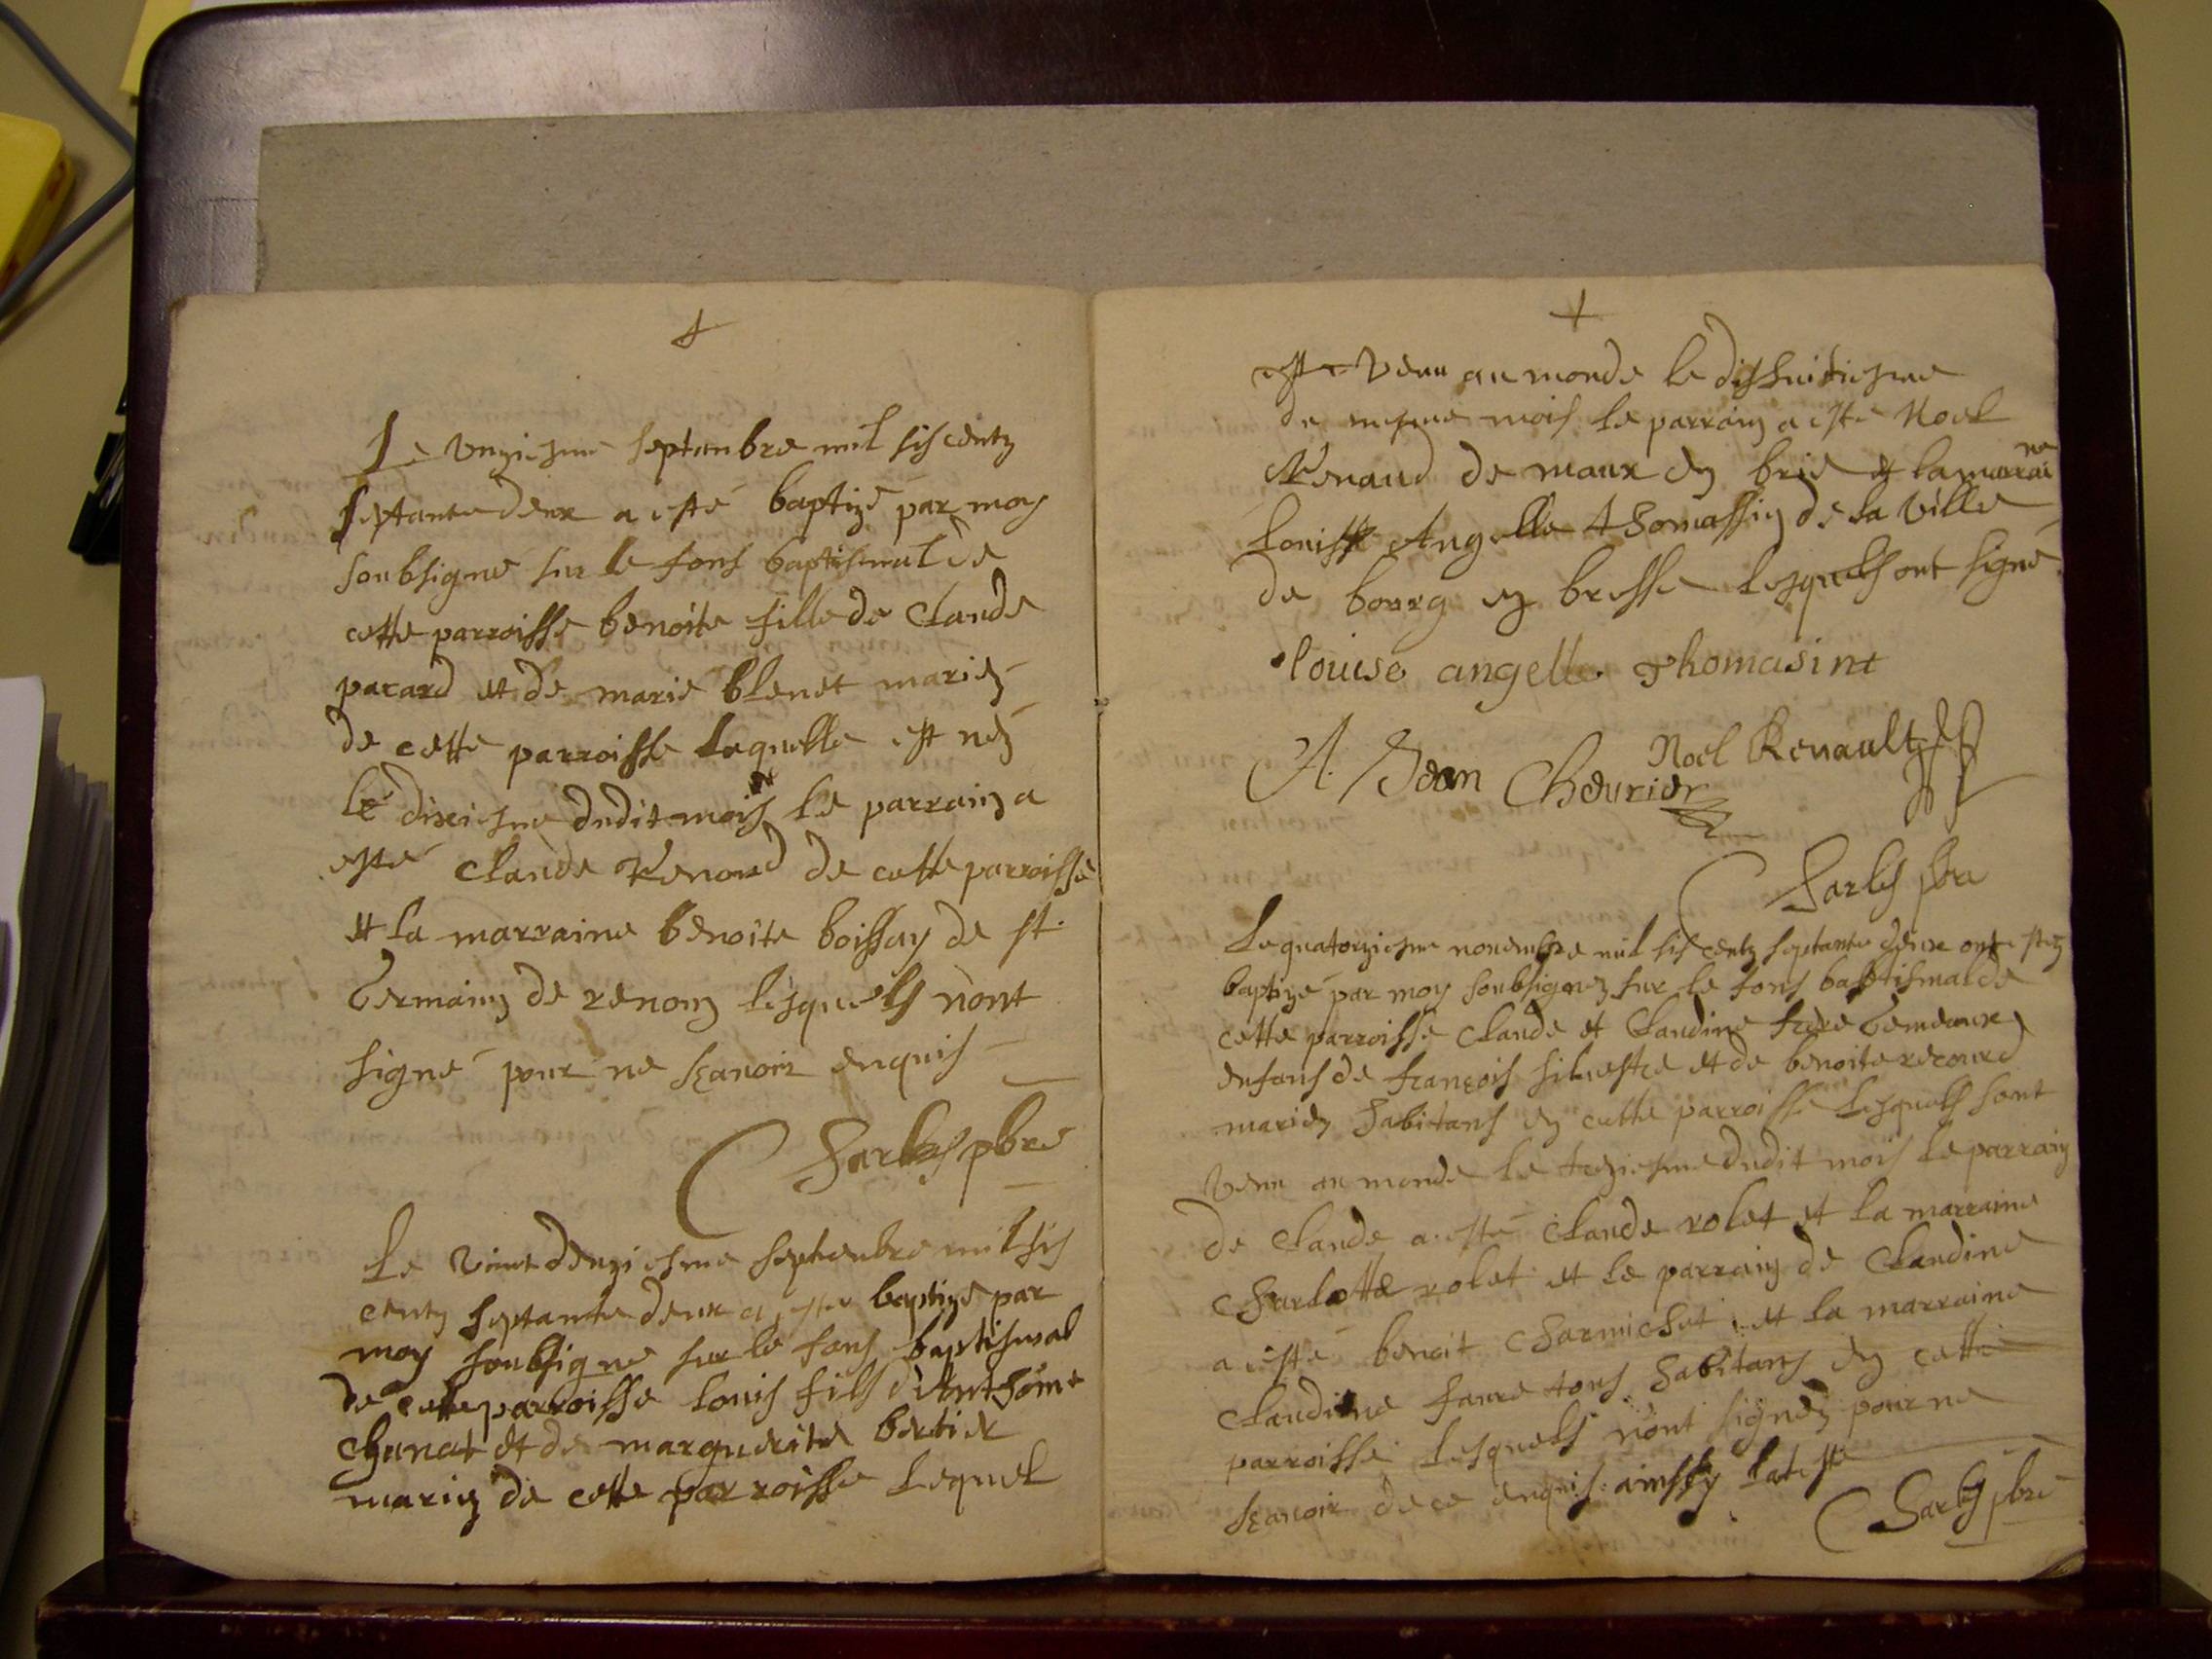 Le unziesme septembre mil sis centz
septante deux a esté baptizé par moy
soubsigné sur le fons baptismal de
cette parroisse benoite fille de Claude
pacard et de marie blenet mariez
de cette parroisse laquelle est néz
le dixiesme dudit mois le parrain a
esté Claude Renoud de cette parroisse
et la marraine benoite boissay de st
Germain de renon lesquels nont
signé pour ne sçauoir enquis
Charles pbre
Le vint deuziesme septembre mil sis
centz septante deux a esté baptizé par
moy soubsigne sur le fons baptismal
de cette parroisse louis fils d'Anthoine
Chanat et de marguerite bertier
mariez de cette parroisse lequel
est venu au monde le dishuitiesme
de mesme mois le parrain a esté Noel
Renaud de maux en brie et la marraine
Louisse Angelle Thomassin de la ville
de bourg en bresse lesquels ont signé
louise angelle Thomasine
Noel Renault
A. Jean Cheurier
Charles pbre
Le quatorziesme nouembre mil sis centz septante deux ont estez
baptizé par moy soubsignez sur le fons babtismal de
cette parroisse Claude et Claudine frere Gemeaux
enfans de françois siluestre et de benoite recourd
mariez habitans en cette parroisse lesquels sont
venu au monde le treziesme dudit mois le parrain
de Claude a esté Claude rolet et la marraine
Charlotte rolet et le parrain de Claudine
a esté benoit Charmichet et la marraine
Claudine faure tous habitans en cette
parroisse lesquels nont signez pour ne
sçauoir de ce enquis. ainssy lateste
Charles pbre